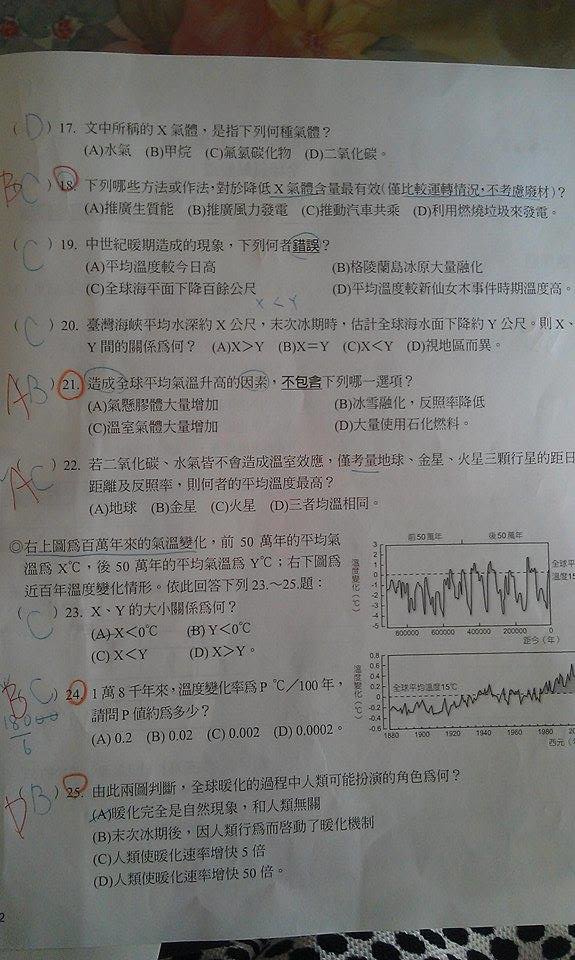 ( D ) 17. 文中所稱的 X 氣體，是指下列何種氣體？
(A)水氣 (B)甲烷 (C)氟氯碳化物 (D)二氧化碳。
B ( C ) 18. 下列哪些方法或作法，對於降低 X 氣體含量最有效(僅比較運轉情況，不考慮廢材)？
(A)推廣生質能 (B)推廣風力發電 (C)推動汽車共乘 (D)利用燃燒垃圾來發電。
( C ) 19. 中世紀暖期造成的現象，下列何者錯誤？
(A)平均溫度較今日高 (B)格陵蘭島冰原大量融化
(C)全球海平面下降百餘公尺 (D)平均溫度較新仙女木事件時期溫度高。
X < Y
( C ) 20. 臺灣海峽平均水深約 X 公尺，末次冰期時，估計全球海水面下降約 Y 公尺。則 X、
Y 間的關係為何？ (A)X＞Y (B)X＝Y (C)X＜Y (D)視地區而異。
A ( B ) 21. 造成全球平均氣溫升高的因素，不包含下列哪一選項？
(A)氣懸膠體大量增加 (B)冰雪融化，反照率降低
(C)溫室氣體大量增加 (D)大量使用石化燃料。
A ( C ) 22. 若二氧化碳、水氣皆不會造成溫室效應，僅考量地球、金星、火星三顆行星的距日
距離及反照率，則何者的平均溫度最高？
(A)地球 (B)金星 (C)火星 (D)三者均溫相同。
◎右上圖為百萬年來的氣溫變化，前 50 萬年的平均氣
溫為 X℃，後 50 萬年的平均氣溫為 Y℃；右下圖為
近百年溫度變化情形。依此回答下列 23.～25.題：
( C ) 23. X、Y 的大小關係為何？
(A) X＜0℃ (B) Y＜0℃
(C) X＜Y (D) X＞Y。
B ( C ) 24. 1 萬 8 千年來，溫度變化率為 P ℃／100 年，
請問 P 值約為多少？
(A) 0.2 (B) 0.02 (C) 0.002 (D) 0.0002。
18000
6
D ( B ) 25. 由此兩圖判斷，全球暖化的過程中人類可能扮演的角色為何？
(A)暖化完全是自然現象，和人類無關
(B)末次冰期後，因人類行為而啓動了暖化機制
(C)人類使暖化速率增快 5 倍
(D)人類使暖化速率增快 50 倍。
前 50 萬年 後 50 萬年
溫度變化(℃)
3
2
1
0
-1
-2
-3
-4
-5
全球平
溫度15
800000 600000 400000 200000 0
距今（年）
溫度變化(℃)
0.8
0.6
0.4
0.2
0
-0.2
-0.4
-0.6
全球平均溫度15℃
1880 1900 1920 1940 1960 1980
西元（年
2